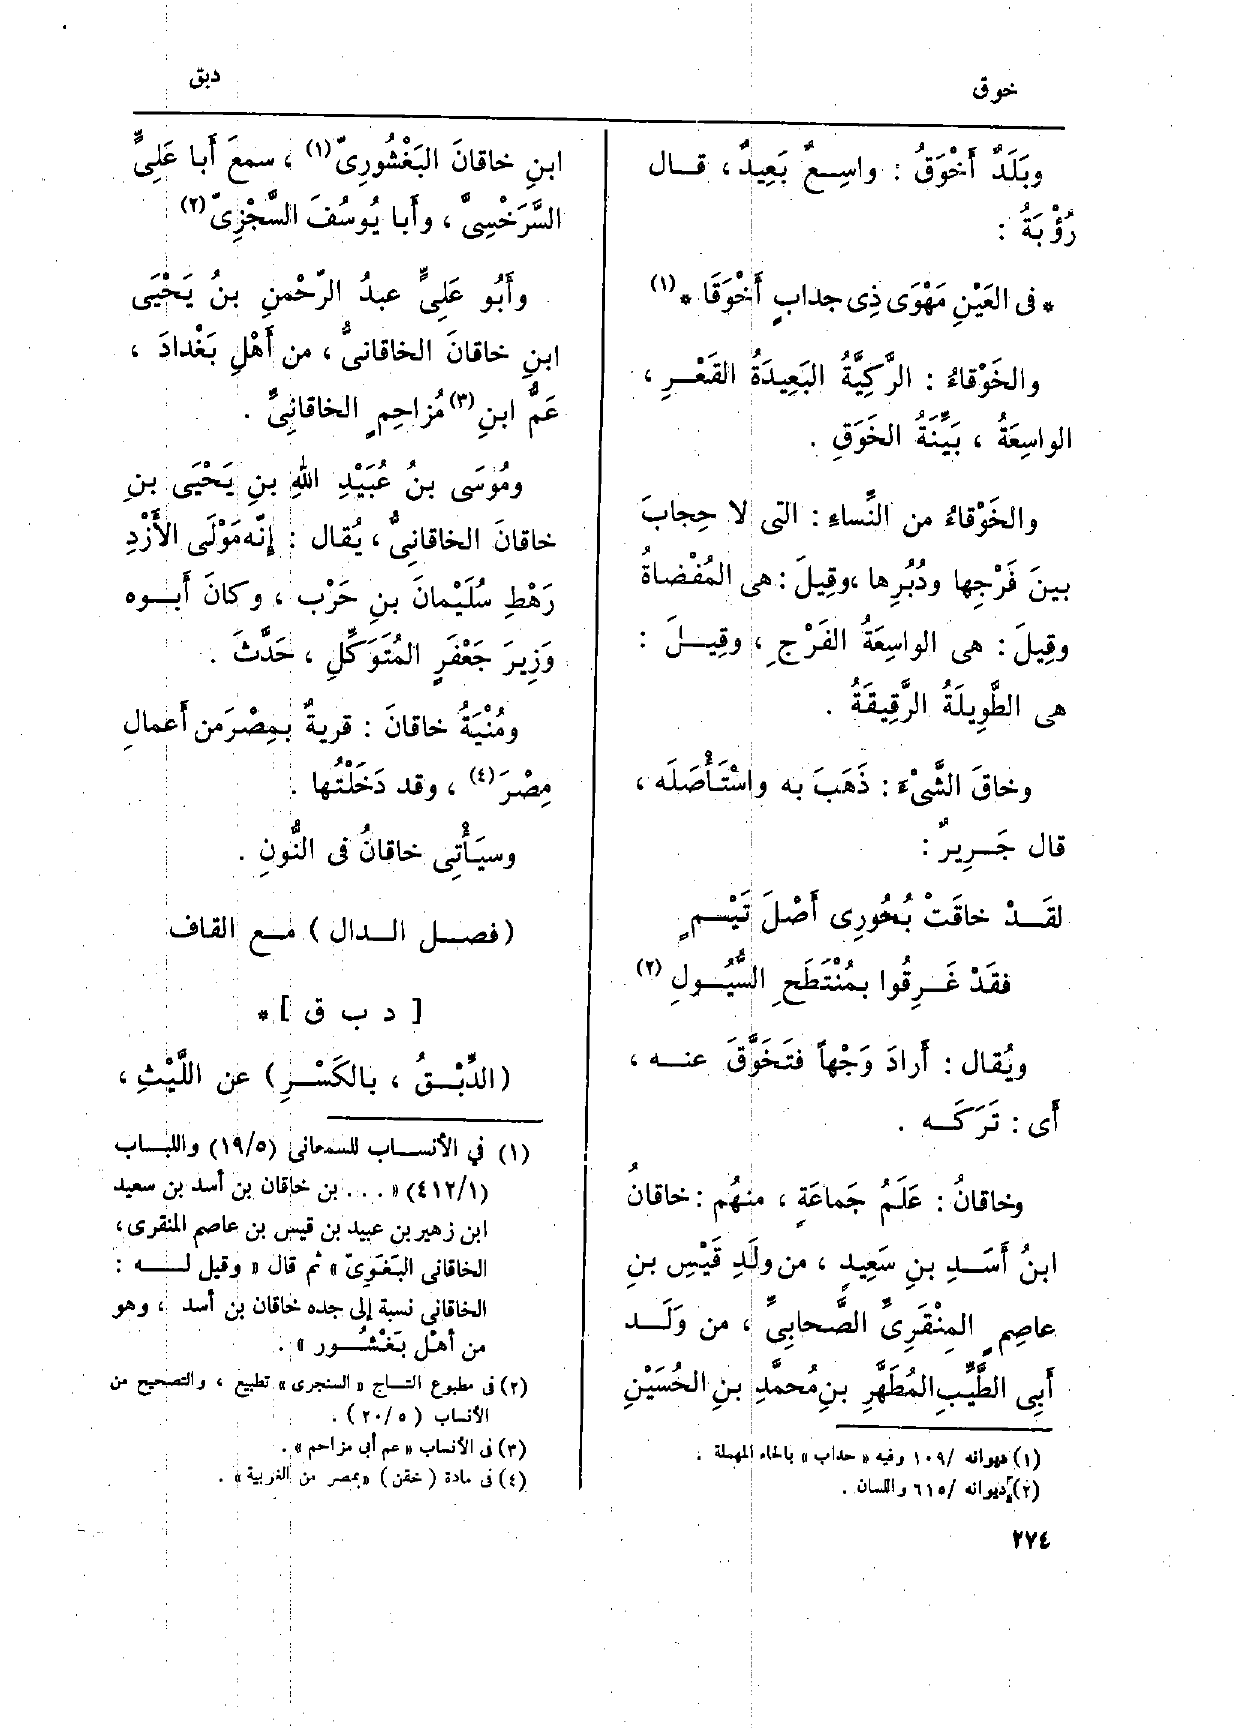 خوق
دبق
وبَلَدٌ أَخْوَقُ : واسِعٌ بَعِيدٌ ، قال
رُؤْبَةُ :
* فى العَيْنِ مَهْوًى ذِى جدابٍ أَخْوَقَا * (١)
والخَوْقاءُ : الرَّكِيَّةُ البَعِيدَةُ القَعْرِ ،
الواسِعَةُ ، بَيِّنَةُ الخَوَقِ .
والخَوْقاءُ من النِّساءِ : التى لا حِجابَ
بينَ فَرْجِها ودُبُرِها ، وقِيلَ : هى المُفْضاةُ
وقِيلَ : هى الواسِعَةُ الفَرْجِ ، وقِيلَ :
هى الطَّوِيلَةُ الرَّقِيقَةُ .
وخاقَ الشَّىْءَ : ذَهَبَ به واسْتَأْصَلَه ،
قال جَرِيرٌ :
لقَدْ خاقَتْ بُحُورِى أَصْلَ تَيْمٍ
فقَدْ غَرِقُوا بمُنْتَطَحِ السُّيُولِ (٢)
ويُقال : أَرادَ وَجْهاً فتَخَوَّقَ عنه ،
أَى : تَرَكَه .
وخاقانُ : عَلَمُ جَماعَةٍ ، منهُم : خاقانُ
ابنُ أَسَدِ بنِ سَعِيدٍ ، من ولَدِ قَيْسِ بنِ
عاصِمٍ المِنْقَرِىِّ الصَّحابِىِّ ، من وَلَد
أَبِى الطَّيِّبِ المُطَهَّرِ بنِ مُحمَّدِ بنِ الحُسَيْنِ
(١) ديوانه /١٠٩ وفيه « حداب » بالحاء المهملة .
(٢) ديوانه /٦١٥ واللسان .
٢٧٤
ابنِ خاقانَ البَغْشُورِىّ (١) ، سمعَ أَبا عَلِىٍّ
السَّرَخْسِىَّ ، وأَبا يُوسُفَ السِّجْزِىّ (٢)
وأَبُو عَلِىٍّ عبدُ الرّحْمنِ بنُ يَحْيَى
ابنِ خاقانَ الخاقانىُّ ، من أَهْلِ بَغْدادَ ،
عَمُّ ابنِ (٣) مُزاحِمٍ الخاقانِىِّ .
ومُوسَى بنُ عُبَيْدِ اللهِ بنِ يَحْيَى بنِ
خاقانَ الخاقانىُّ ، يُقال : إِنّه مَوْلَى الأَزْدِ
رَهْطِ سُلَيْمانَ بنِ حَرْب ، وكانَ أَبوه
وَزِيرَ جَعْفَرٍ المُتَوَكِّلِ ، حَدَّثَ .
ومُنْيَةُ خاقانَ : قريةٌ بمِصْرَ من أَعمالِ
مِصْرَ (٤) ، وقد دَخَلْتُها .
وسيَأْتِى خاقانُ فى النُّونِ .
(فصل الدال ) مع القاف
[ د ب ق ] *
(الدِّبْقُ ، بالكَسْرِ ) عن اللَّيْثِ ،
(١) في الأنساب للسمعانى (١٩/٥) واللباب
(٤١٢/١) « . . . بن خاقان بن أسد بن سعيد
ابن زهير بن عبيد بن قيس بن عاصم المنقرى ،
الخاقانى البَغَوِىّ » ثم قال « وقيل له :
الخاقانى نسبة إلى جده خاقان بن أسد ، وهو
من أهل بَغْشُور » .
(٢) فى مطبوع التاج « السنجرى » تطبيع ، والتصحيح من
الأنساب ( ٢٠/٥ ) .
(٣) فى الأنساب « عم أبى مزاحم » .
(٤) فى مادة ( خقن ) « بمصر من الغربية » .